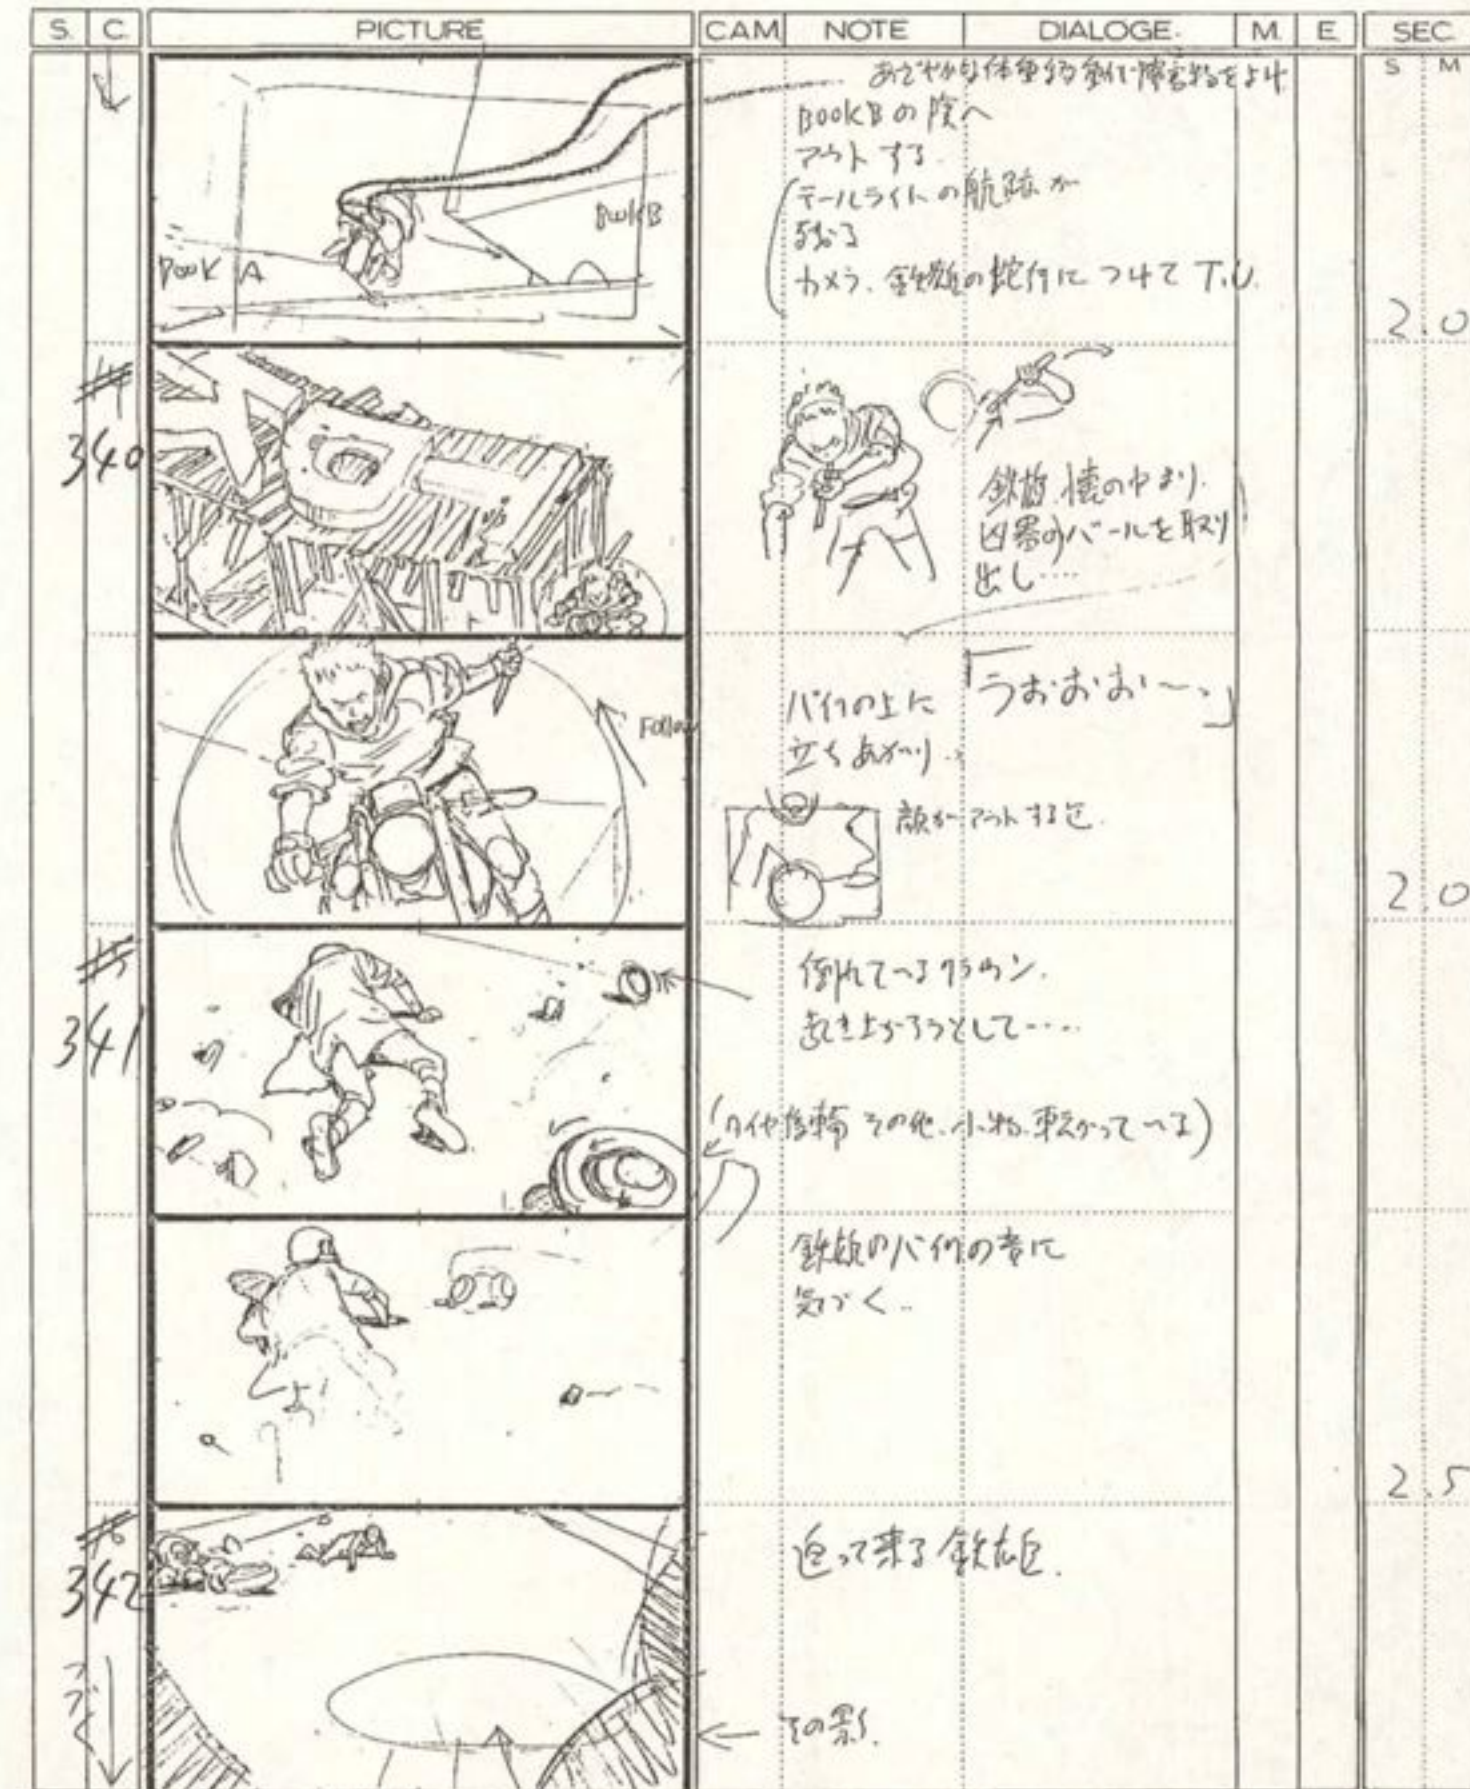 S. C. PICTURE CAM NOTE DIALOGE. M. E. SEC
S M
あざやかな体重移動で障害物をよけ
BOOK Bの陰へ
アウトする
テールライトの航跡が
残る
カメラ、鉄雄の蛇行につけて T.U.
BOOK A
BookB
2.0
340
鉄雄、懐の中より、
凶器のバールを取り
出し……
Follow
バイクの上に
立ちあがり‥
「うおおお〜っ」
顔がアウトする迄.
2.0
341
倒れているクラウン.
起き上がろうとして‥‥
後輪 その他、小物、転がっている)
鉄雄のバイクの音に
気づく‥
2.5
342
つづく
迫って来る鉄雄.
その影.